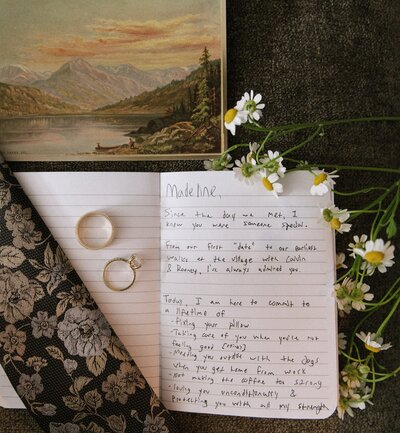 Madeline,
Since the day we met, I
know you were someone special.
From our first "date" to our earliest
walks at the village with Calvin
& Rooney, I've always admired you.
Today, I am here to commit to
a lifetime of
- fixing your pillow
- Taking care of you when you're not
feeling good
- Meeting you outside with the dogs
when you get home from work
- Not making the coffee too strong
- loving you unconditionally &
protecting you with all my strength